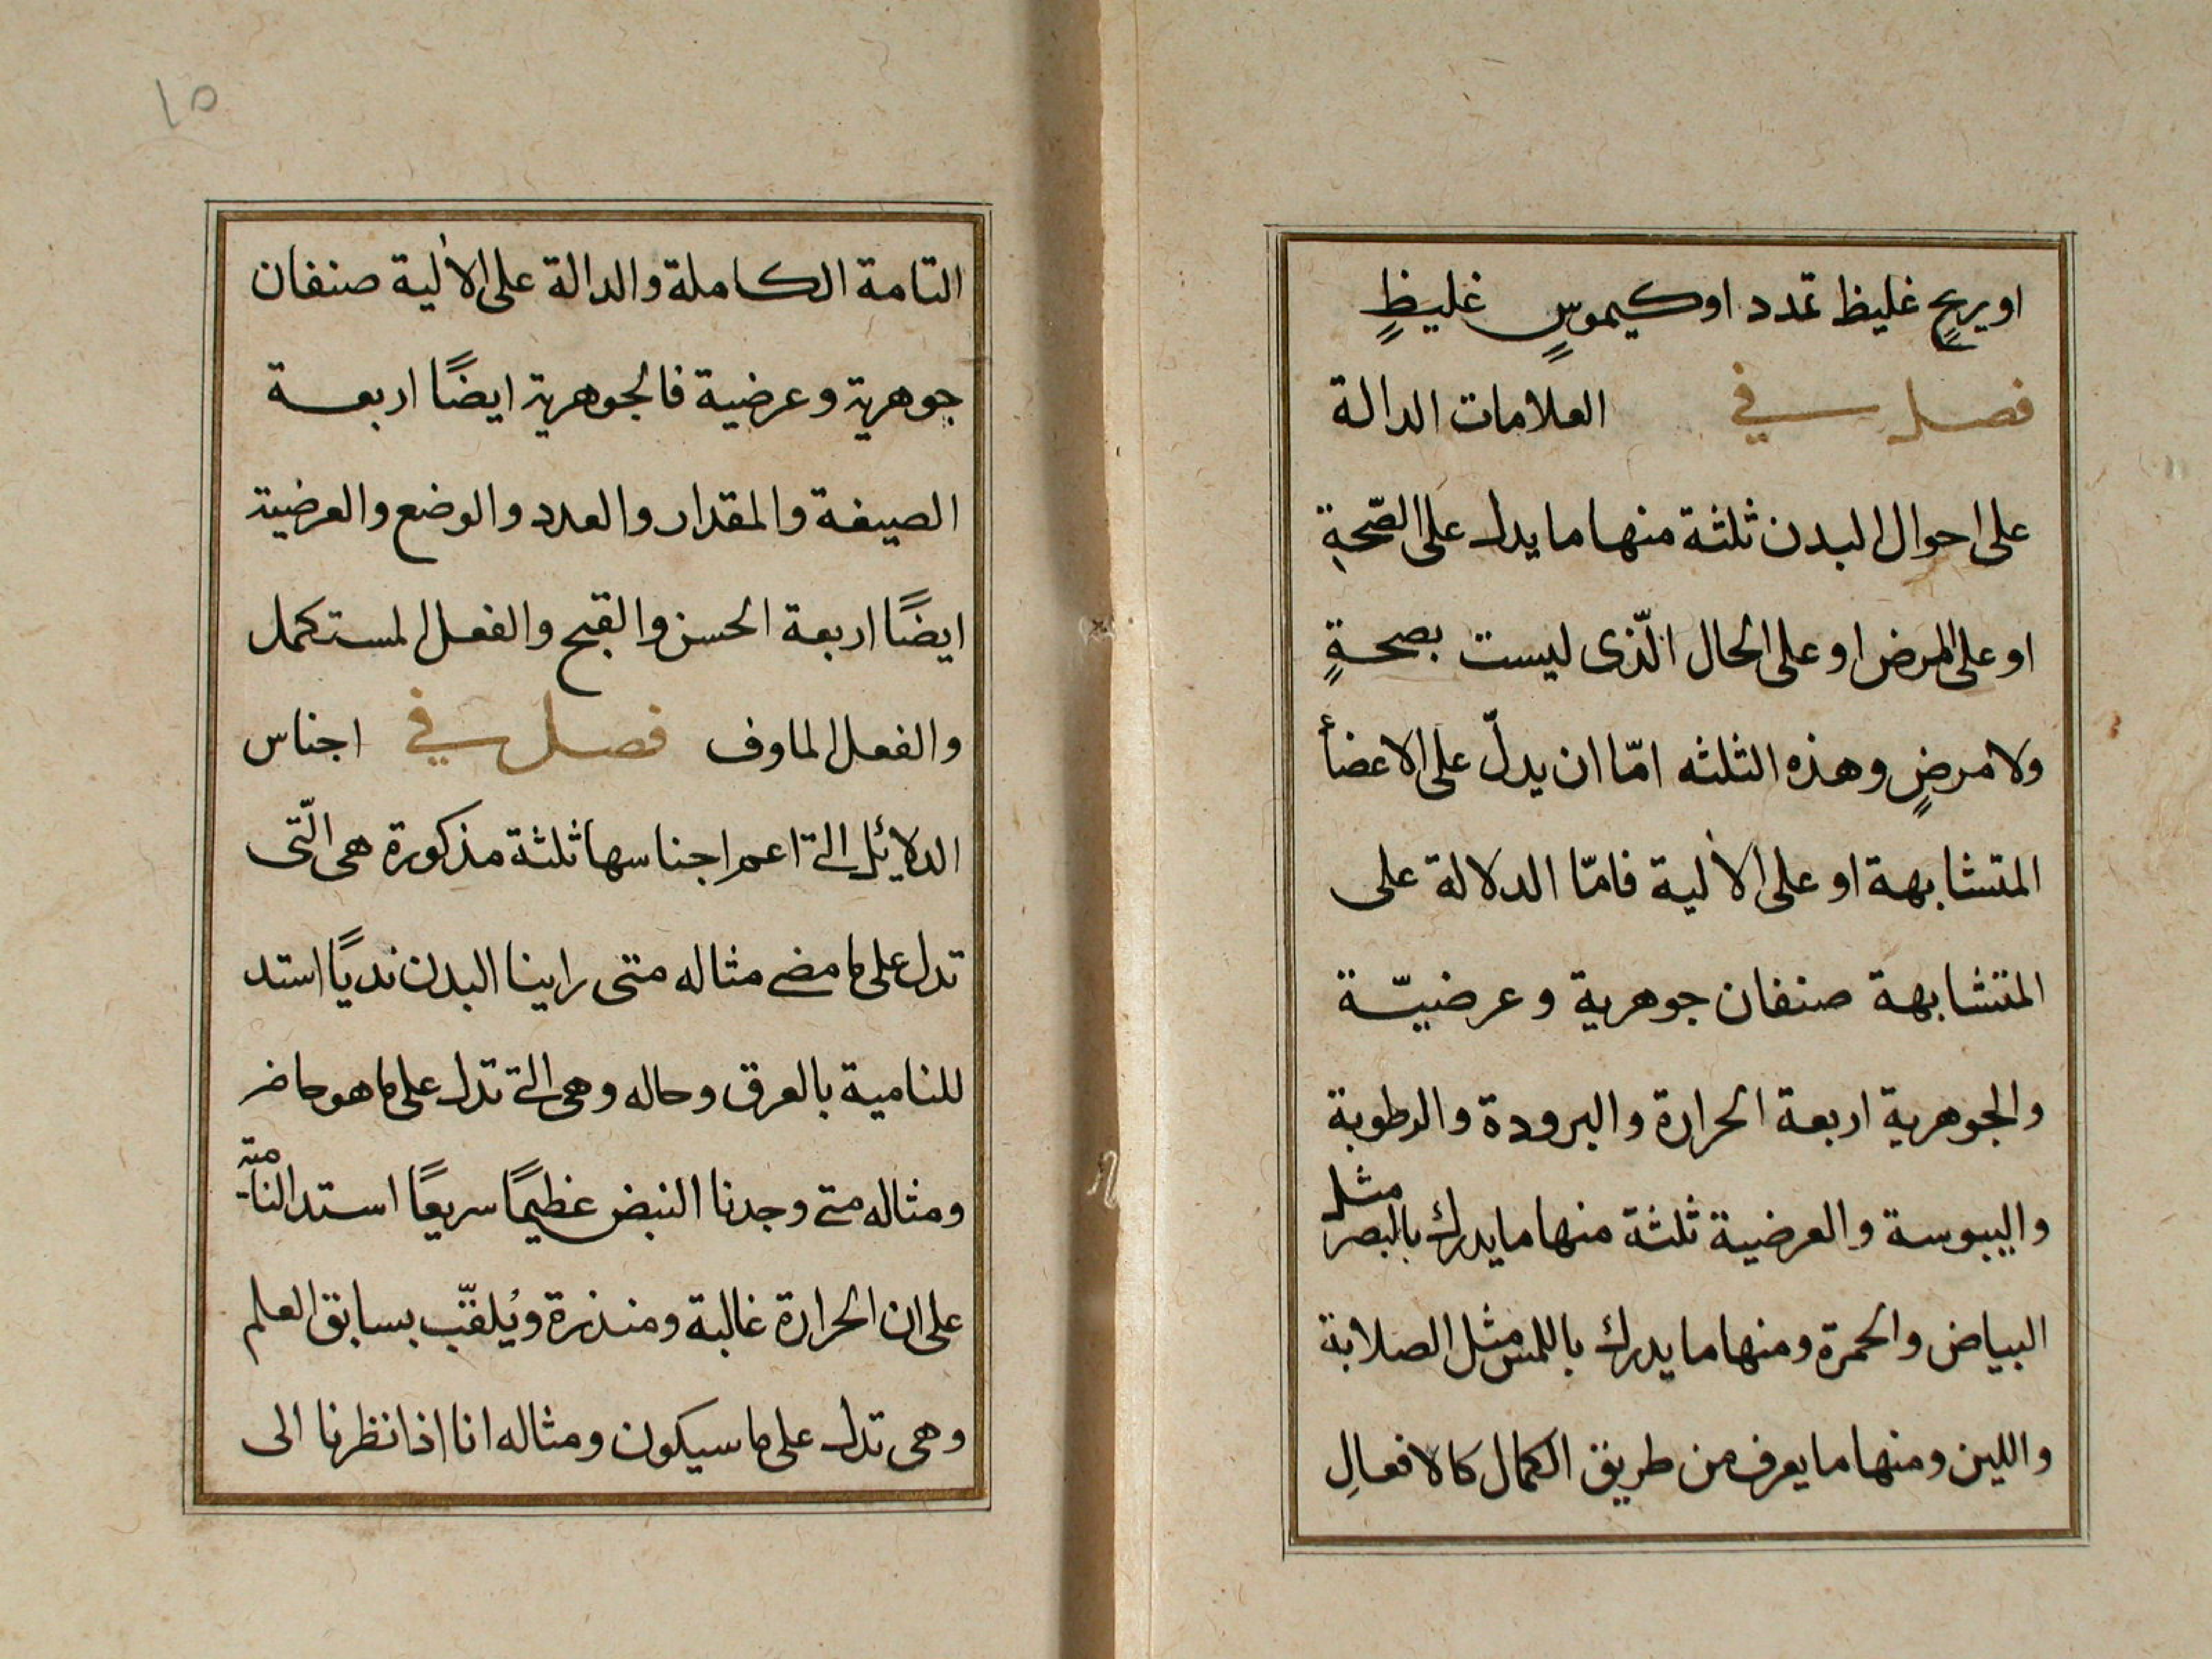 او يريحٍ غليظ تمدد او كيموسٍ غليظٍ
فصل في العلامات الدالة
على احوال البدن ثلثة منها ما يدل على الصّحةِ
او على المرض او على الحال الّذى ليست بصحةٍ
ولا مرضٍ وهذه الثلثه امّا ان يدلّ على الاعضأ
المتشابهة او على الألية فامّا الدلالة على
المتشابهة صنفان جوهرية وعرضيّة
والجوهرية اربعة الحرارة والبرودة والرطوبة
واليبوسة والعرضية ثلثة منها ما يدرك بالبصر مثل
البياض والحمرة ومنها ما يدرك باللمس مثل الصلابة
واللين ومنها ما يعرف من طريق الكمال كالافعالِ
١٥
التامة الكاملة والدالة على الألية صنفان
جوهرية وعرضية فالجوهرية ايضًا اربعة
الصيغة والمقدار والعدد والوضع والعرضية
ايضًا اربعة الحسن والقبح والفعل المستكمل
والفعل الماوف فصل في اجناس
الدلائل التى اعم اجناسها ثلثة مذكورة هى الّتى
تدل على ما مضى مثاله متى راينا البدن نديًا استد
للنامية بالعرق وحاله وهى التى تدل على ما هو حاضر
ومثاله متى وجدنا النبض عظيمًا سريعًا استد النامية
على ان الحرارة غالبة ومنذرة ويُلقّب بسابق العلم
وهى تدل على ما سيكون ومثاله انا اذا نظرنا الى